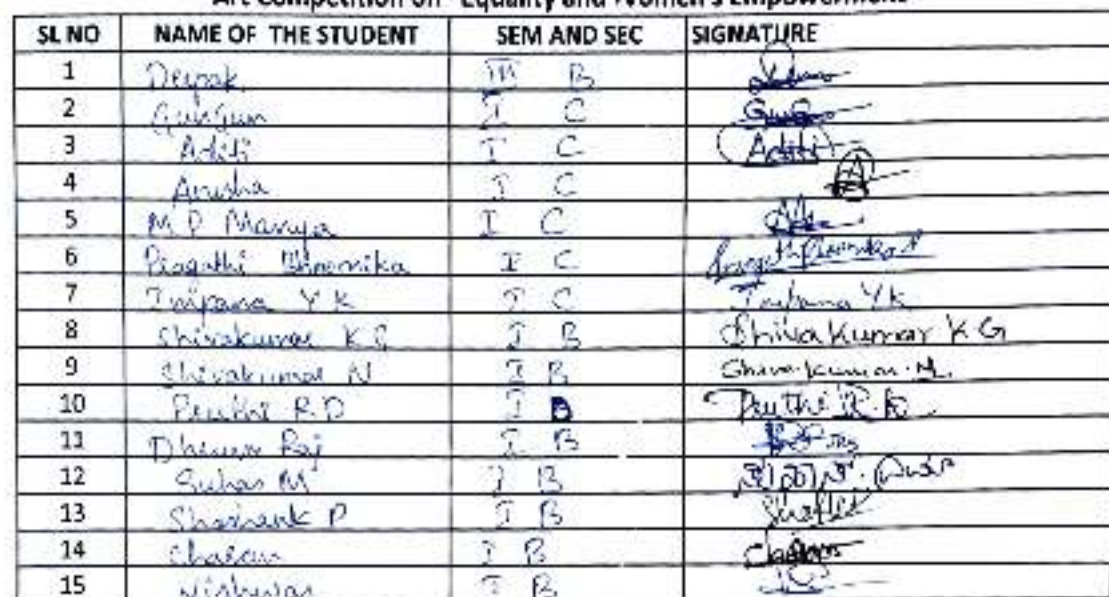 Art Competition on "Equality and Women's Empowerment"
SL NO NAME OF THE STUDENT SEM AND SEC SIGNATURE
1 Deepak III B
2 GunGun I C
3 Aditi I C Aditi
4 Anusha I C
5 M P Manya I C
6 Pragathi Bhoomika I C
7 Impana Y K I C Impana Y K
8 Shivakumar K G I B Shiva Kumar K G
9 Shivakumar N I B Shiva kumar. N
10 Pruthi R.D I B Pruthi R.D
11 Dhanush Raj I B
12 Suhas M I B
13 Shashank P I B
14 Charan I B
15 Vishwas I B